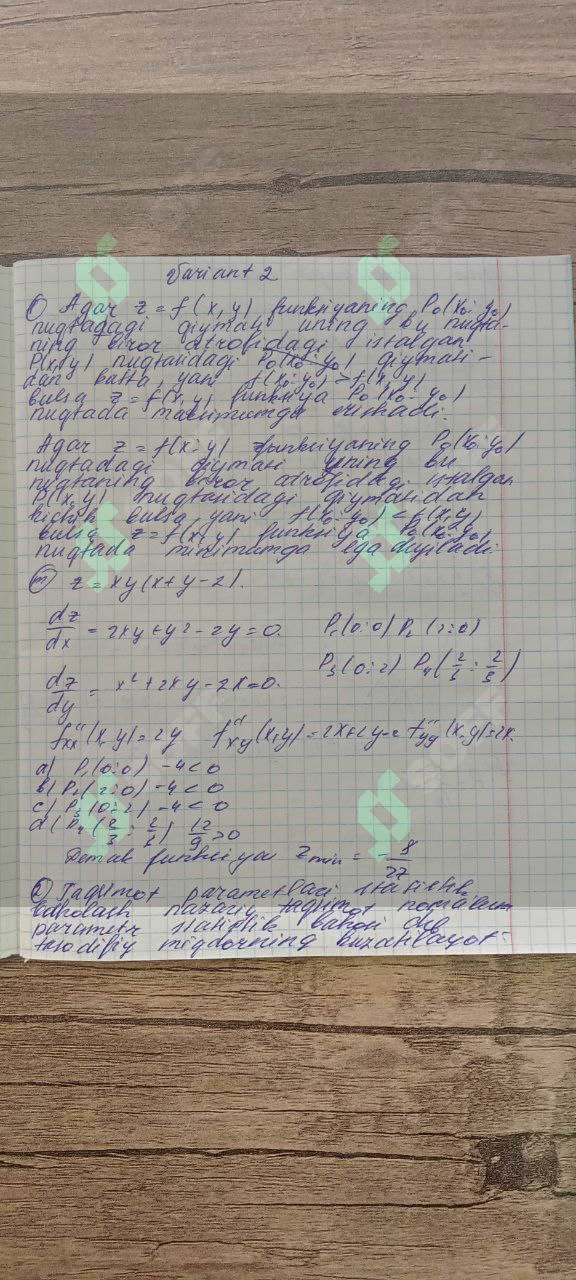 Variant 2
① Agar z = f(x, y) funksiyaning P₀(x₀; y₀)
nuqtadagi qiymati uning bu nuqta-
ning biror atrofidagi istalgan
P(x, y) nuqtasidagi P₀(x₀; y₀) qiymati-
dan katta, yani f(x₀; y₀) > f(x, y)
bulsa z = f(x, y) funksiya P₀(x₀; y₀)
nuqtada maksimumga erishadi.
Agar z = f(x; y) funksiyaning P₀(x₀; y₀)
nuqtadagi qiymati uning bu
nuqtaning biror atrofidagi istalgan
P(x, y) nuqtasidagi qiymatidan
kichik bulsa yani f(x₀; y₀) < f(x, y)
bulsa z = f(x, y) funksiya P₀(x₀; y₀)
nuqtada minimumga ega deyiladi
z = xy(x + y - 2).
dz/dx = 2xy + y² - 2y = 0. P₁(0; 0) P₂(2; 0)
P₃(0; 2) P₄(2/3; 2/3)
dz/dy = x² + 2xy - 2x = 0.
f''xx(x, y) = 2y f''xy(x, y) = 2x + 2y - 2 f''yy(x, y) = 2x.
a) P₁(0; 0) -4 < 0
b) P₂(2; 0) -4 < 0
c) P₃(0; 2) -4 < 0
d) P₄(2/3; 2/3) 12/9 > 0
Demak funksiya z min = -8/27
② Taqsimot parametrlari statistik
baholash nazariy taqsimot
parametr statistik bahosi deb
tasodifiy miqdorning kuzatilayot-